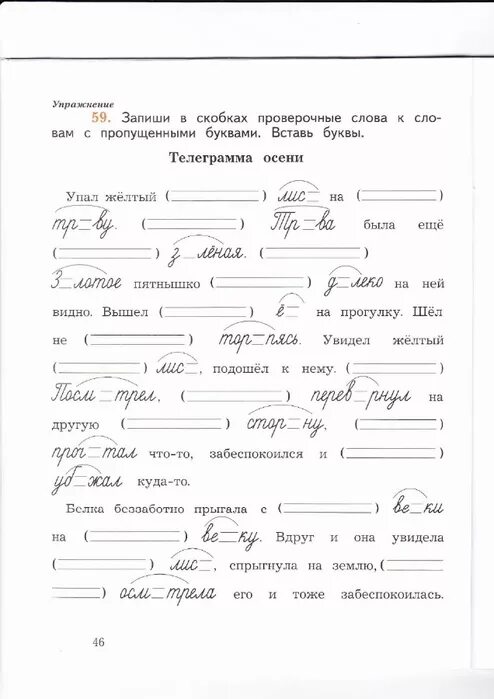 Упражнение
59. Запиши в скобках проверочные слова к сло-
вам с пропущенными буквами. Вставь буквы.
Телеграмма осени
Упал жёлтый (__________) лис_ на (__________)
тр_ву. (__________) Тр_ва была ещё
(__________) з_лёная. (__________)
З_лотое пятнышко (__________) д_леко на ней
видно. Вышел (__________) ё_ на прогулку. Шёл
не (__________) тор_пясь. Увидел жёлтый
(__________) лис_, подошёл к нему. (__________)
Посм_трел, (__________) перев_рнул на
другую (__________) стор_ну, (__________)
проч_тал что-то, забеспокоился и (__________)
уб_жал куда-то.
Белка беззаботно прыгала с (__________) ве_ки
на (__________) ве_ку. Вдруг и она увидела
(__________) лис_, спрыгнула на землю, (______
__________) осм_трела его и тоже забеспокоилась.
46